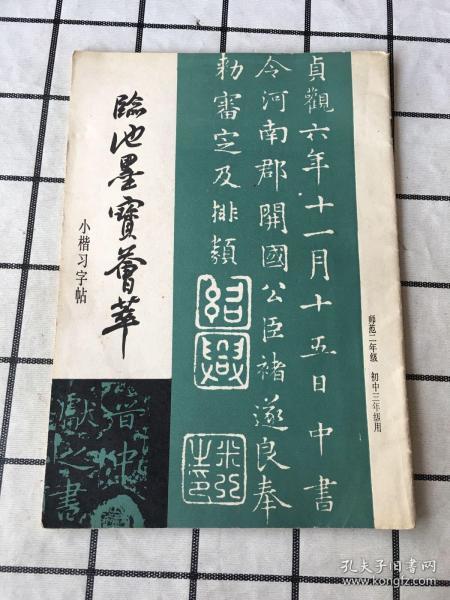 臨池墨寶薈萃
小楷习字帖
貞觀六年十一月十五日中書
令河南郡開國公臣褚遂良奉
勑審定及排類
紹興
米芾之印
师范二年级 初中三年级用
獻之書
孔夫子旧书网
www.kongfz.com